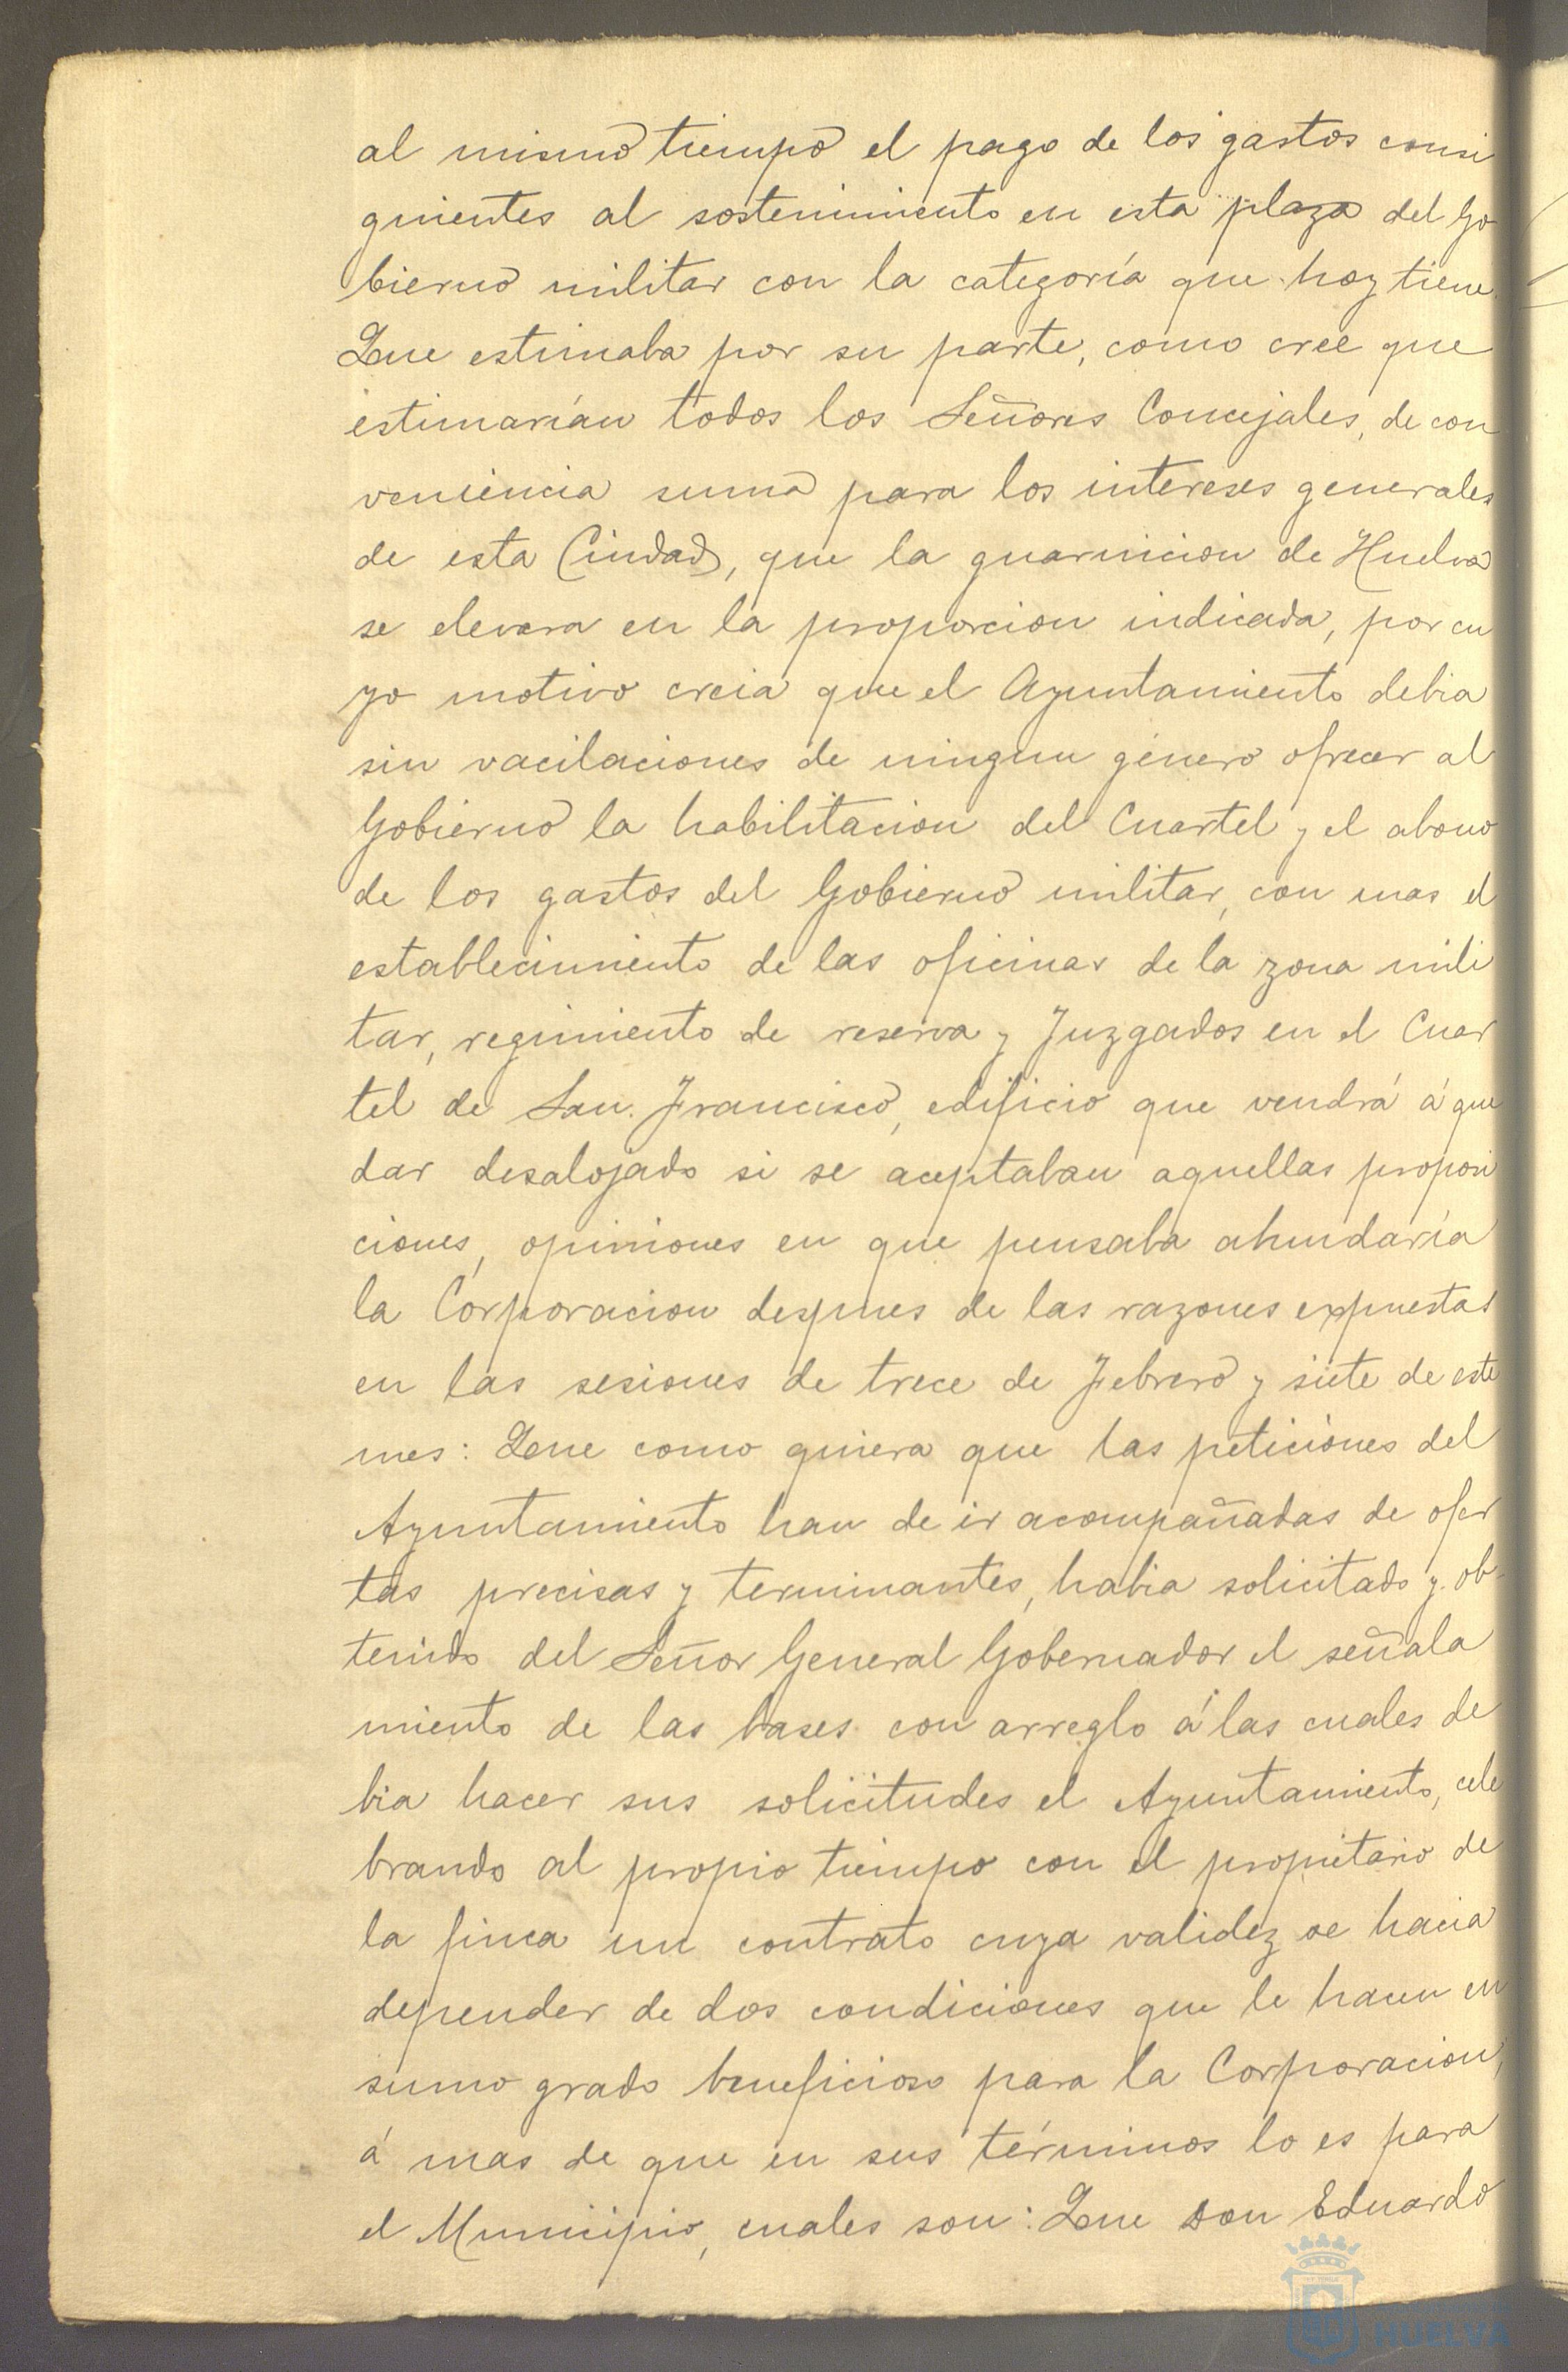 al mismo tiempo el pago de los gastos consi
guientes al sostenimiento en esta plaza del Go
bierno militar con la categoría que hoy tiene
Que estimaba por su parte, como cree que
estimarían todos los Señores Concejales, de con
veniencia suma para los intereses generales
de esta Ciudad, que la guarnicion de Huelva
se elevara en la proporcion indicada, por cu
yo motivo creia que el Ayuntamiento debia
sin vacilaciones de ningun género ofrecer al
Gobierno la habilitacion del Cuartel y el abono
de los gastos del Gobierno militar, con mas el
establecimiento de las oficinas de la zona mili
tar, regimiento de reserva y Juzgados en el Cuar
tel de San Francisco, edificio que vendrá á que
dar desalojado si se aceptaban aquellas proposi
ciones, opiniones en que pensaba ahundaría
la Corporacion despues de las razones expuestas
en las sesiones de trece de Febrero y siete de este
mes: Que como quiera que las peticiones del
Ayuntamiento han de ir acompañadas de ofer
tas precisas y terminantes, habia solicitado y ob-
tenido del Señor General Gobernador el señala
miento de las bases con arreglo á las cuales de
bia hacer sus solicitudes el Ayuntamiento, cele
brando al propio tiempo con el propietario de
la finca un contrato cuya validez se hacia
depender de dos condiciones que le hacen en
sumo grado beneficioso para la Corporacion,
á mas de que en sus términos lo es para
el Municipio, cuales son: Que Don Eduardo
HUELVA